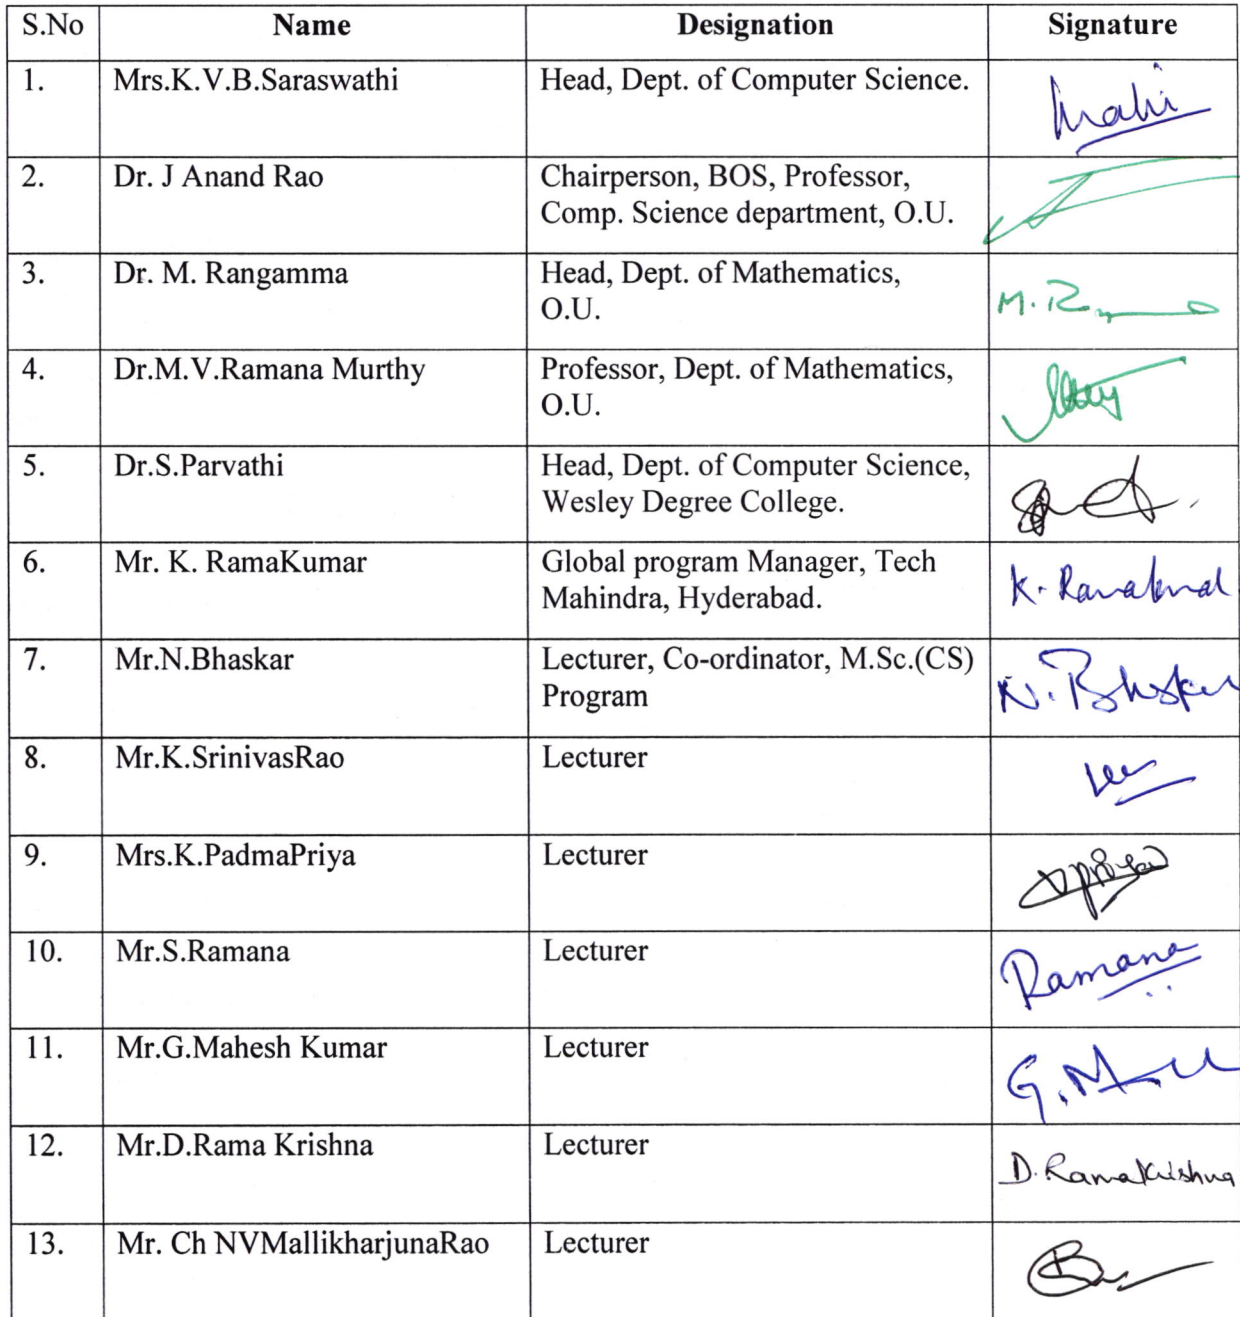 S.No Name Designation Signature
1. Mrs.K.V.B.Saraswathi Head, Dept. of Computer Science.
2. Dr. J Anand Rao Chairperson, BOS, Professor,
Comp. Science department, O.U.
3. Dr. M. Rangamma Head, Dept. of Mathematics,
O.U. M. R
4. Dr.M.V.Ramana Murthy Professor, Dept. of Mathematics,
O.U.
5. Dr.S.Parvathi Head, Dept. of Computer Science,
Wesley Degree College.
6. Mr. K. RamaKumar Global program Manager, Tech
Mahindra, Hyderabad.
7. Mr.N.Bhaskar Lecturer, Co-ordinator, M.Sc.(CS)
Program N. Bhskar
8. Mr.K.SrinivasRao Lecturer
9. Mrs.K.PadmaPriya Lecturer
10. Mr.S.Ramana Lecturer Ramana
11. Mr.G.Mahesh Kumar Lecturer
12. Mr.D.Rama Krishna Lecturer D. RamaKrishna
13. Mr. Ch NVMallikharjunaRao Lecturer